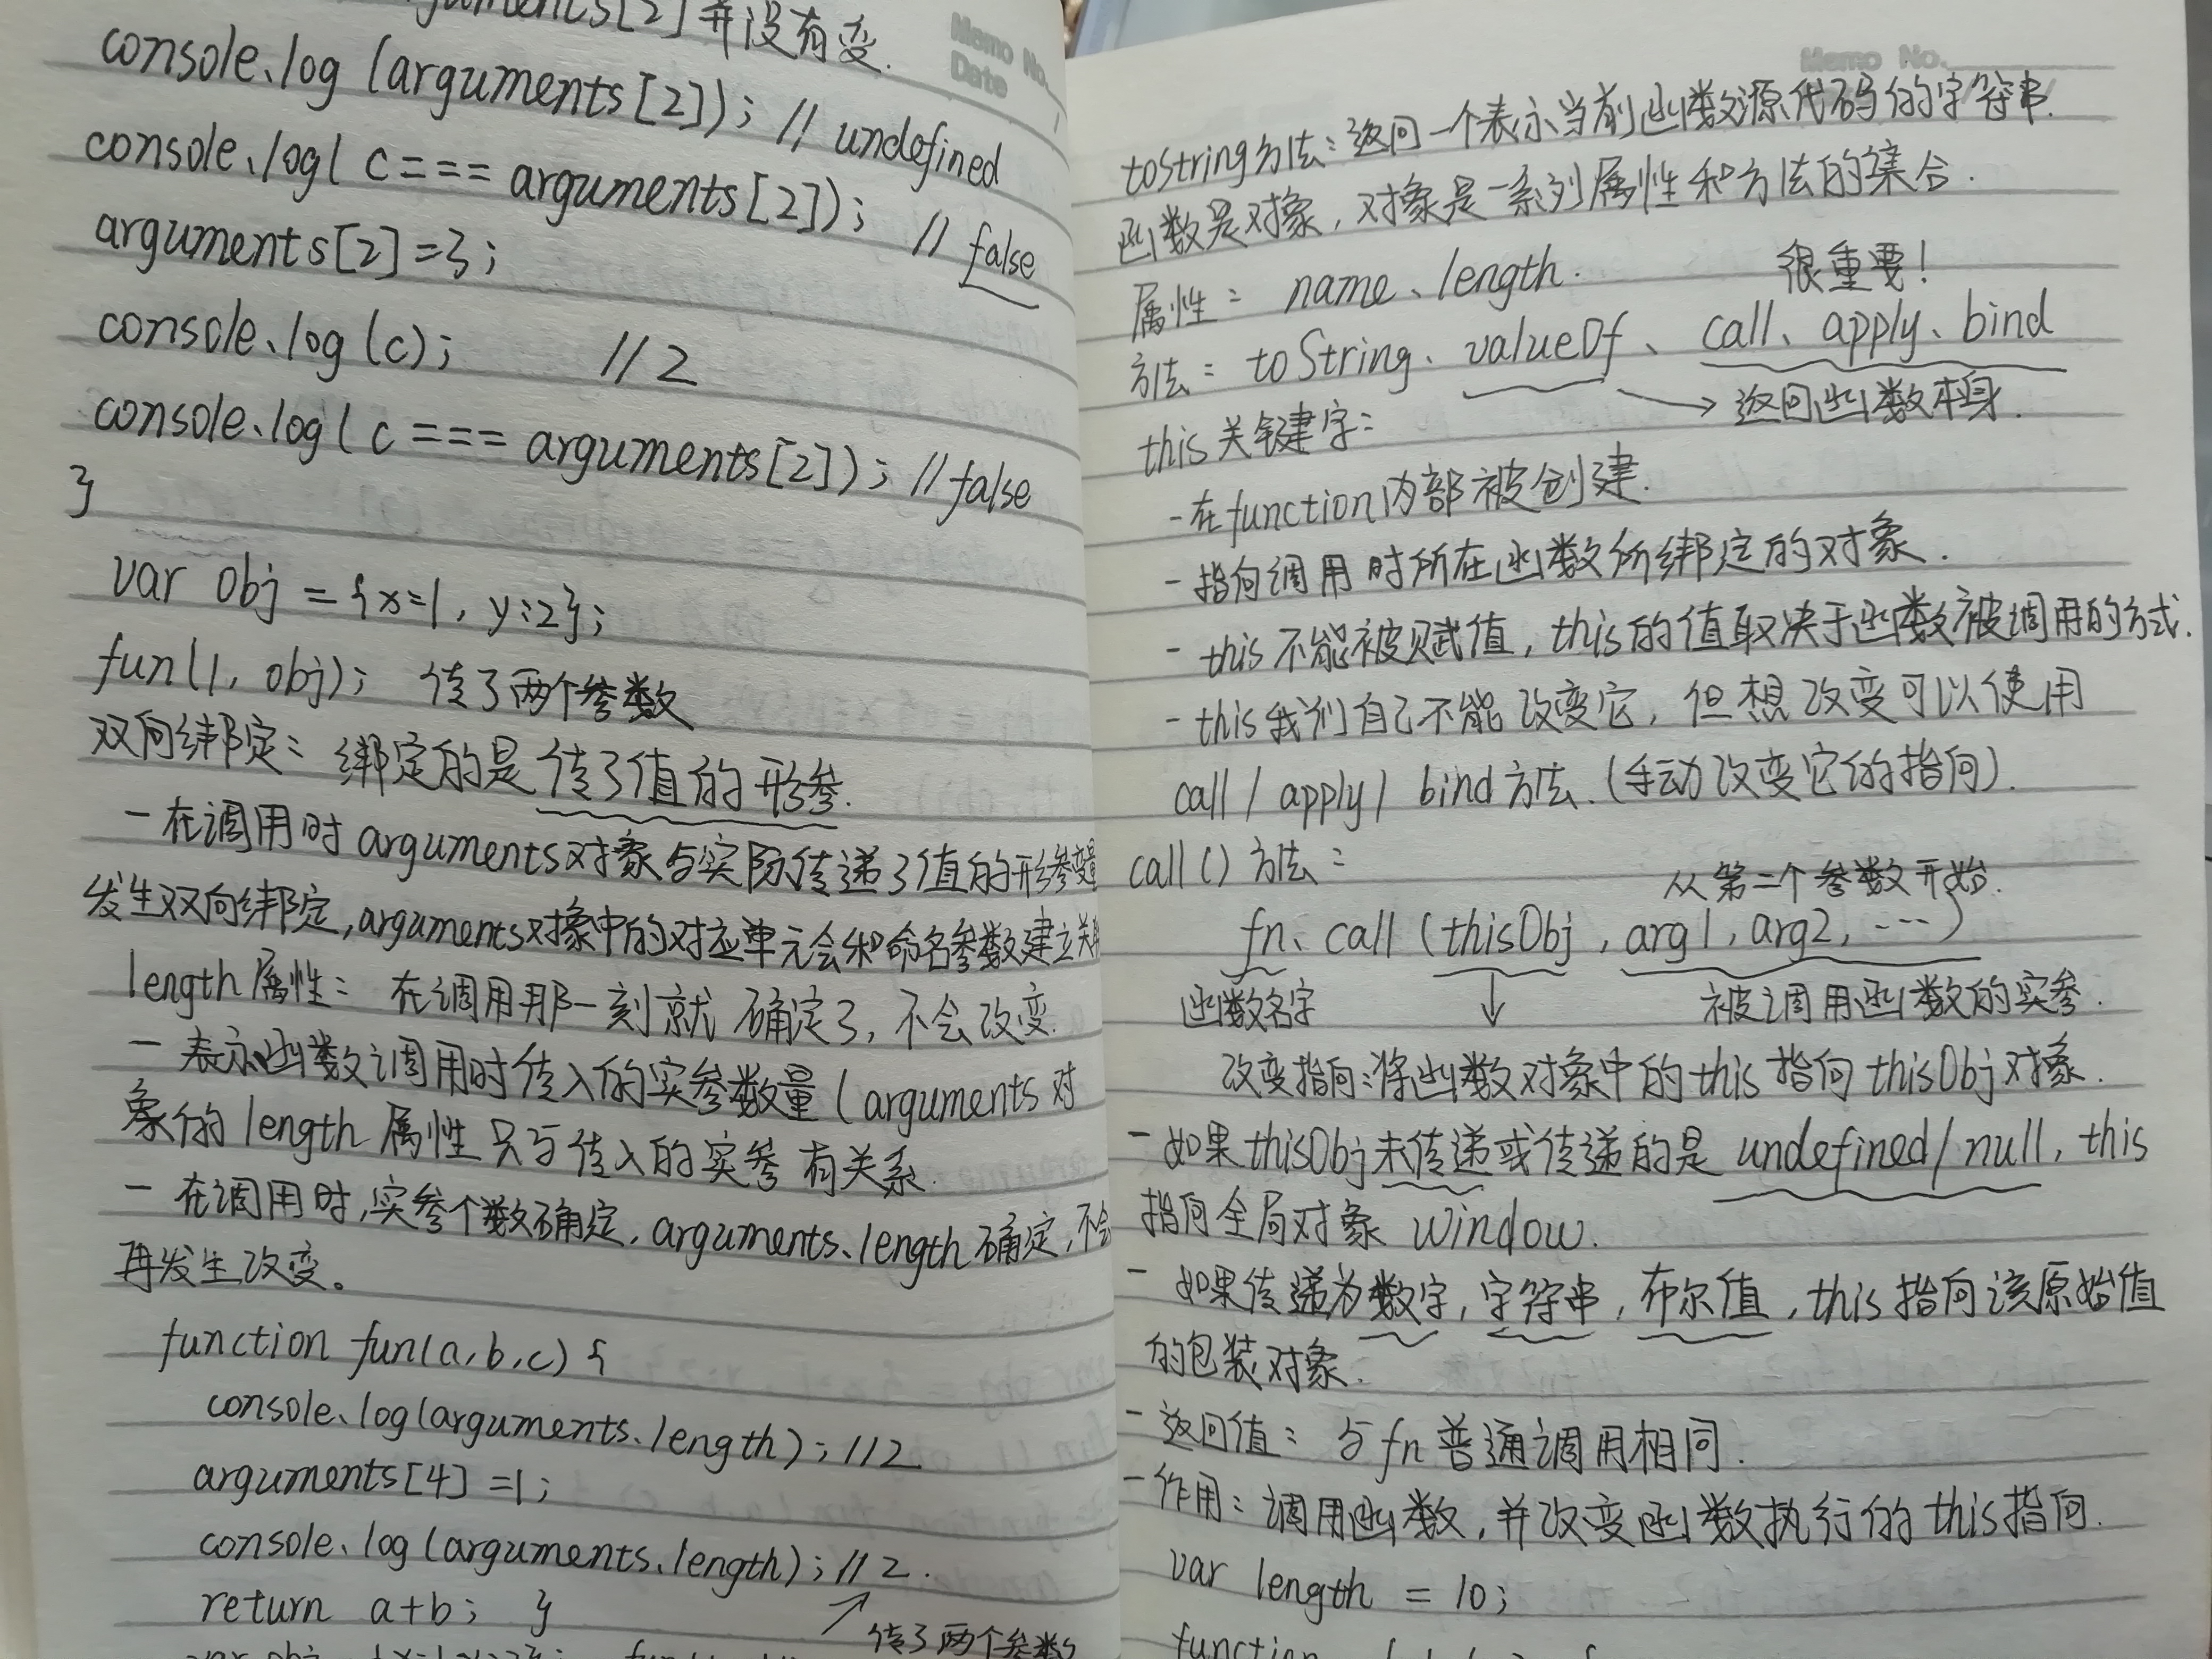 arguments[2]并没有变.
console.log (arguments[2]); // undefined
console.log( c=== arguments[2]); // false
arguments[2]=3;
console.log (c); //2
console.log( c === arguments[2]); //false
}
var obj = {x=1, y:2};
fun(1, obj); 传了两个参数
双向绑定: 绑定的是传了值的形参.
- 在调用时 arguments对象与实际传递了值的形参变量
发生双向绑定,arguments对象中的对应单元会和命名参数建立关
length属性: 在调用那一刻就确定了, 不会改变.
- 表示函数调用时传入的实参数量 (arguments对
象的length属性只与传入的实参有关系.
- 在调用时,实参个数确定, arguments.length确定, 不会
再发生改变。
function fun(a,b,c) {
console.log(arguments.length); //2
arguments[4] =1;
console.log (arguments.length); //2.
return a+b; }
传了两个参数
Memo No.
Date
Memo No.
toString方法: 返回一个表示当前函数源代码的字符串.
函数是对象, 对象是一系列属性和方法的集合.
属性: name、length.
很重要!
方法: toString、valueOf、call、apply、bind
→返回函数本身.
this关键字:
- 在function内部被创建.
- 指向调用时所在函数所绑定的对象.
- this不能被赋值, this的值取决于函数被调用的方式.
- this我们自己不能改变它, 但想改变可以使用
call / apply / bind方法. (手动改变它的指向).
call() 方法:
从第二个参数开始.
fn. call (thisObj, arg1, arg2, ...)
函数名字 ↓ 被调用函数的实参.
改变指向:将函数对象中的this指向thisObj对象.
- 如果thisObj未传递或传递的是undefined/null, this
指向全局对象 window.
- 如果传递为数字, 字符串, 布尔值, this指向该原始值
的包装对象.
- 返回值: 与fn普通调用相同.
- 作用: 调用函数, 并改变函数执行的this指向.
var length = 10;
function